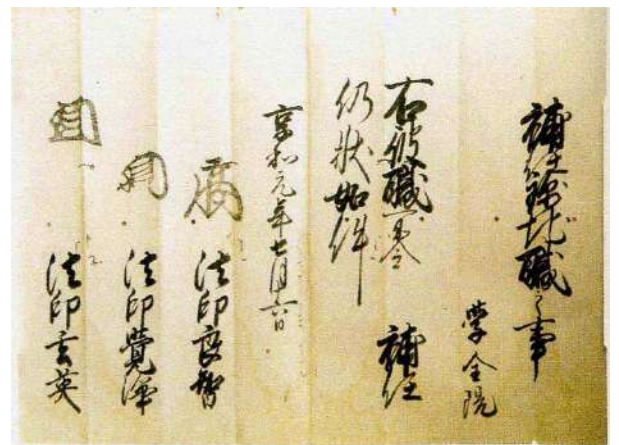 補任錦地職之事
學全院
右彼職令補任
仍状如件
享和元年七月六日
法印良智
法印覺
法印玄英